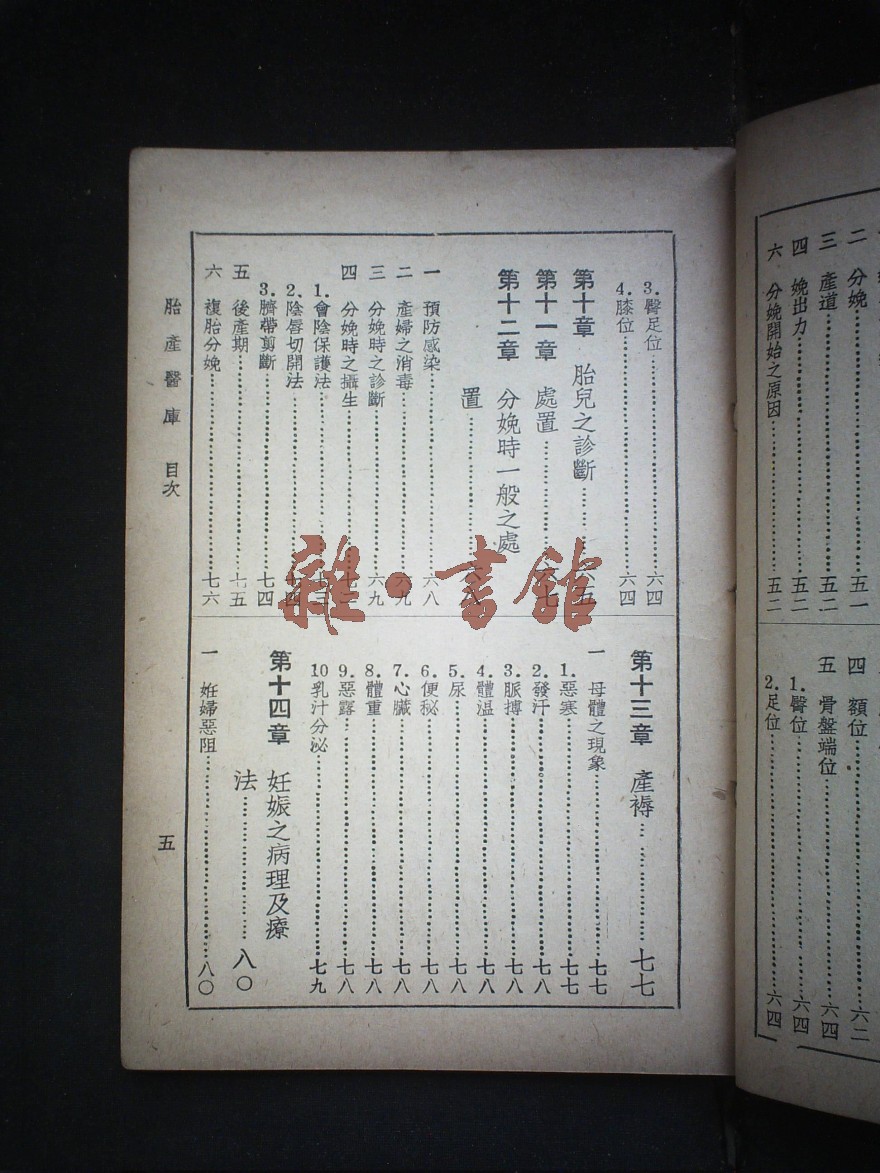 二 分娩……五一
三 產道……五二
四 娩出力……五二
六 分娩開始之原因……五二
四 額位……六二
五 骨盤端位……六四
1.臀位……六四
2.足位……六四
3.臀足位……六四
4.膝位……六四
第十章 胎兒之診斷……六五
第十一章 處置……六七
第十二章 分娩時一般之處
置……
一 預防感染……六八
二 產婦之消毒……六九
三 分娩時之診斷……六九
四 分娩時之攝生……七
1.會陰保護法……七
2.陰唇切開法……
3.臍帶剪斷……七四
五 後產期……七五
六 複胎分娩……七六
第十三章 產褥……七七
一 母體之現象……七七
1.惡寒……七七
2.發汗……七八
3.脈搏……七八
4.體温……七八
5.尿……七八
6.便秘……七八
7.心臟……七八
8.體重……七八
9.惡露……七八
10乳汁分泌……七九
第十四章 妊娠之病理及療
法……八〇
一 妊婦惡阻……八〇
胎產醫庫 目次
五
雜·書館